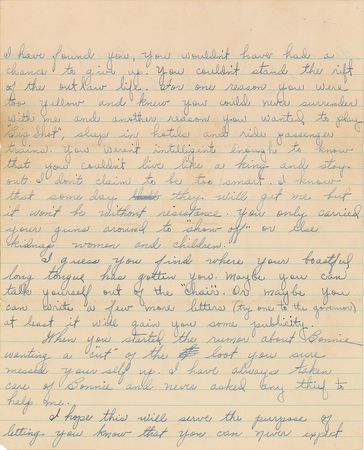 I have found you, you wouldn't have had a
chance to give up. You couldn't stand the rift
of the outlaw life. For one reason you were
too yellow and knew you could never surrender
with me and another reason you wanted to play
"Big Shot", sleep in hotels and ride passenger
trains. You weren't intelligent enough to know
that you couldn't live like a king and stay
out. I don't claim to be too smart. I know
that some day they will get me but
it won't be without resistance. You only carried
your guns around to "show off" or else
kidnap women and children.
I guess you find where your boastful
long tongue has gotten you. Maybe you can
talk yourself out of the "chair". Or maybe you
can write a few more letters (try one to the governor)
at least it will gain you some publicity.
When you started the rumor about Bonnie
wanting a "cut" of the loot you sure
messed yourself up. I have always taken
care of Bonnie and never asked any thief to
help me.
I hope this will serve the purpose of
letting you know that you can never expect